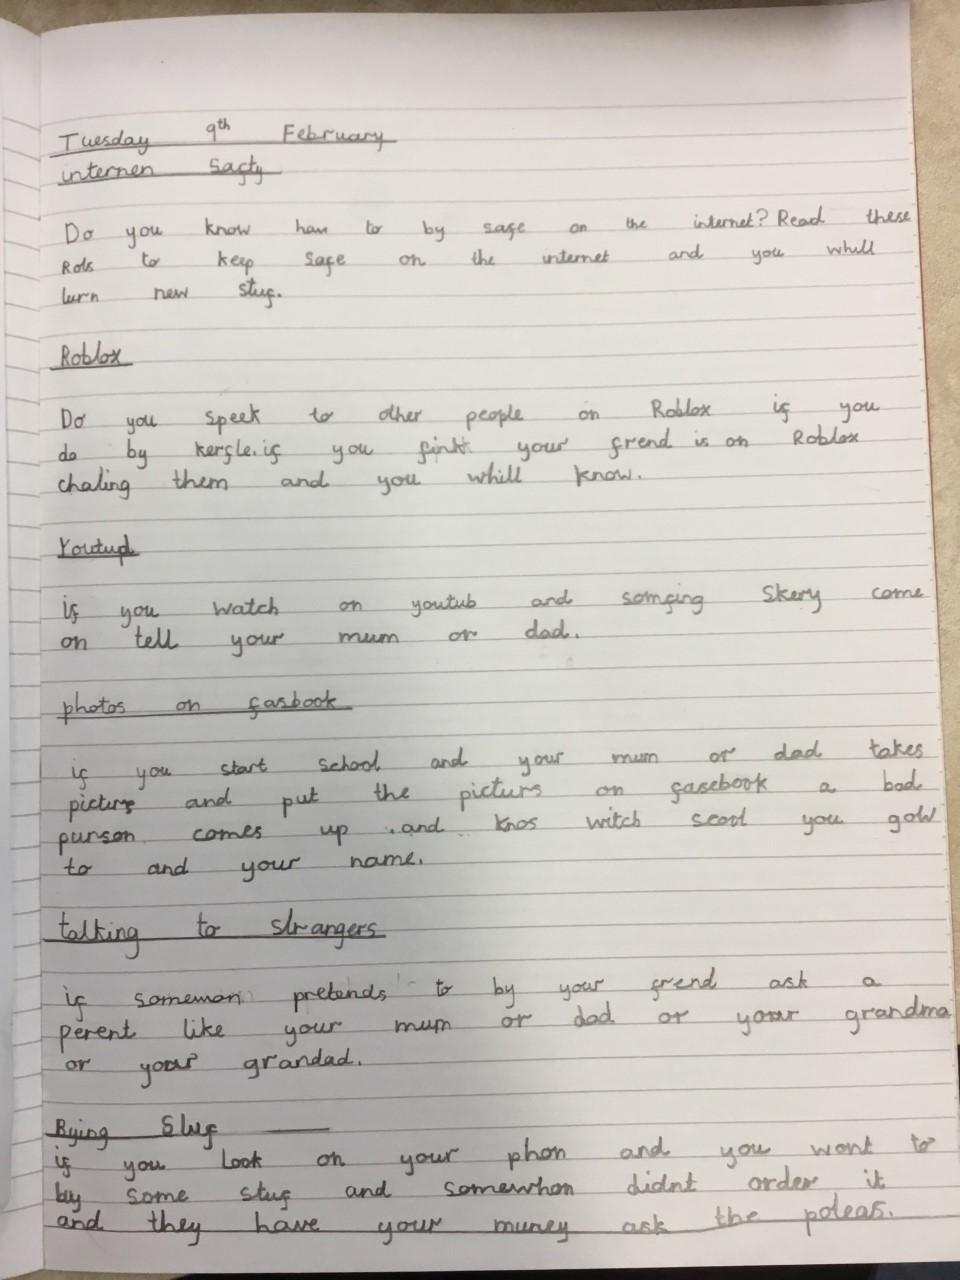 Tuesday 9th February
internen Safty
Do you know haw to by safe on the internet? Read these
Rols to keep safe on the internet and you whill
lurn new stuf.
Roblox
Do you speek to other people on Roblox if you
do by kerfle. if you fink your frend is on Roblox
chaling them and you whill know.
Youtup
if you watch on youtub and somfing Skery come
on tell your mum or dad.
photos on fasbook
if you start school and your mum or dad takes
picturs and put the picturs on fasebook a bad
purson comes up and knos witch scool you gow
to and your name.
talking to strangers
if somemon pretends to by your frend ask a
perent like your mum or dad or your grandma
or your grandad.
Bying Stuf
if you Look on your phon and you wont to
by some stuf and somewhon didnt order it
and they have your muney ask the poleas.